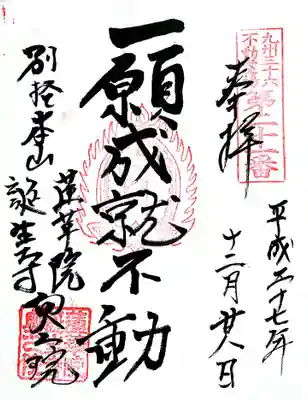 九州三十六
不動霊場
第二十二番
奉拝
平成二十七年
十二月廿八日
一願成就不動
別格本山
蓮華院
誕生寺奥之院